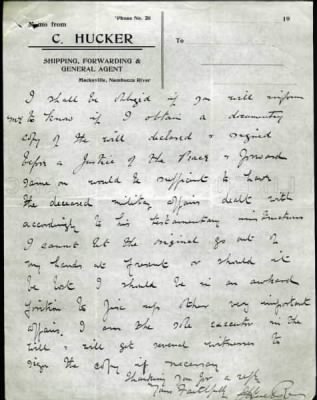 'Phone No. 26
19
Memo from
C. HUCKER
To
SHIPPING, FORWARDING &
GENERAL AGENT
Macksville, Nambucca River
I shall be obliged if you will inform
me to know if I obtain a documentary
copy of the will declared & signed
before a Justice of the Peace & forward
same on would be sufficient to have
the deceased military affairs dealt with
accordingly to his testamentary instructions
I cannot let the original go out of
my hands at present or should it
be lost I should be in an awkward
position to fix up other very important
affairs. I am the sole executor in the
will & will get several witnesses to
sign the copy if necessary
Thanking you for a reply
Yours Faithfully